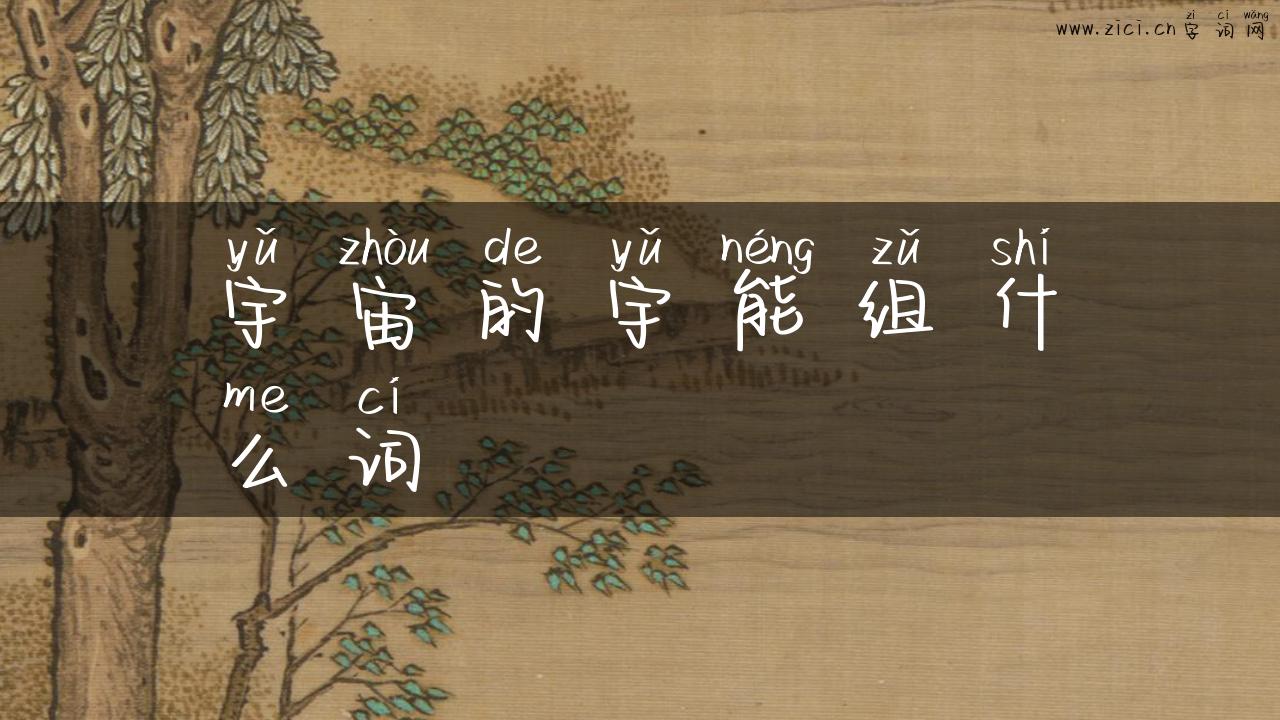 zì cí wǎng
www.zici.cn 字词网
yǔ zhòu de yǔ néng zǔ shí
宇宙的宇能组什
me cí
么词